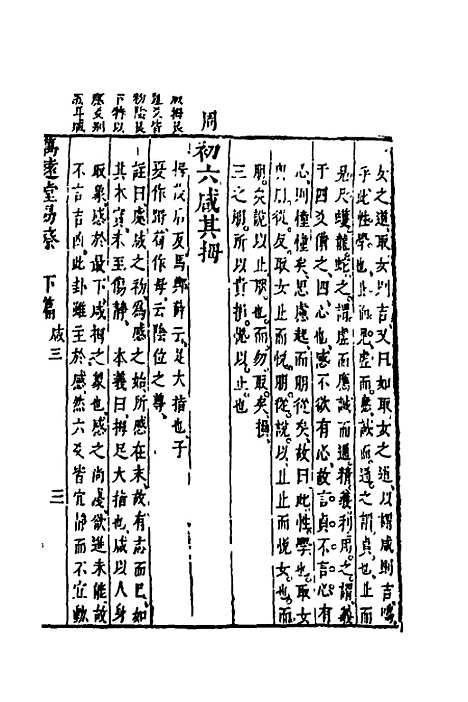 女之道取女則吉又曰如取女之道以娶咸則吉嗚
乎此性學也止而兌虛而應誠而通之謂貞也止而
見尺蠖龍蛇之謂虛而應誠而通精義利用之謂義
于四爻備之四心也感不欲有心故言貞不言心有
心則憧憧矣思慮起而朋從矣故曰此性學也取女
則以從反取女止而悅朋從說以止止而悅女也而
朋矣說以止朋也而勿取矣損
三之朋所以貴損悅以止也
周
初六咸其拇
拇茂后反馬鄭薛云足大指也子
夏作荷作母云陰位之尊
註曰處咸之初為感之始所感在末故有志而已如
其本實未至傷靜 本義曰拇足大指也咸以人身
取象感於最下咸拇之象也感之尚淺欲進未能故
不言吉凶此卦雖主於感然六爻皆宜靜而不宜動
萬遠堂易蔡 下篇 咸三 三
咸拇艮